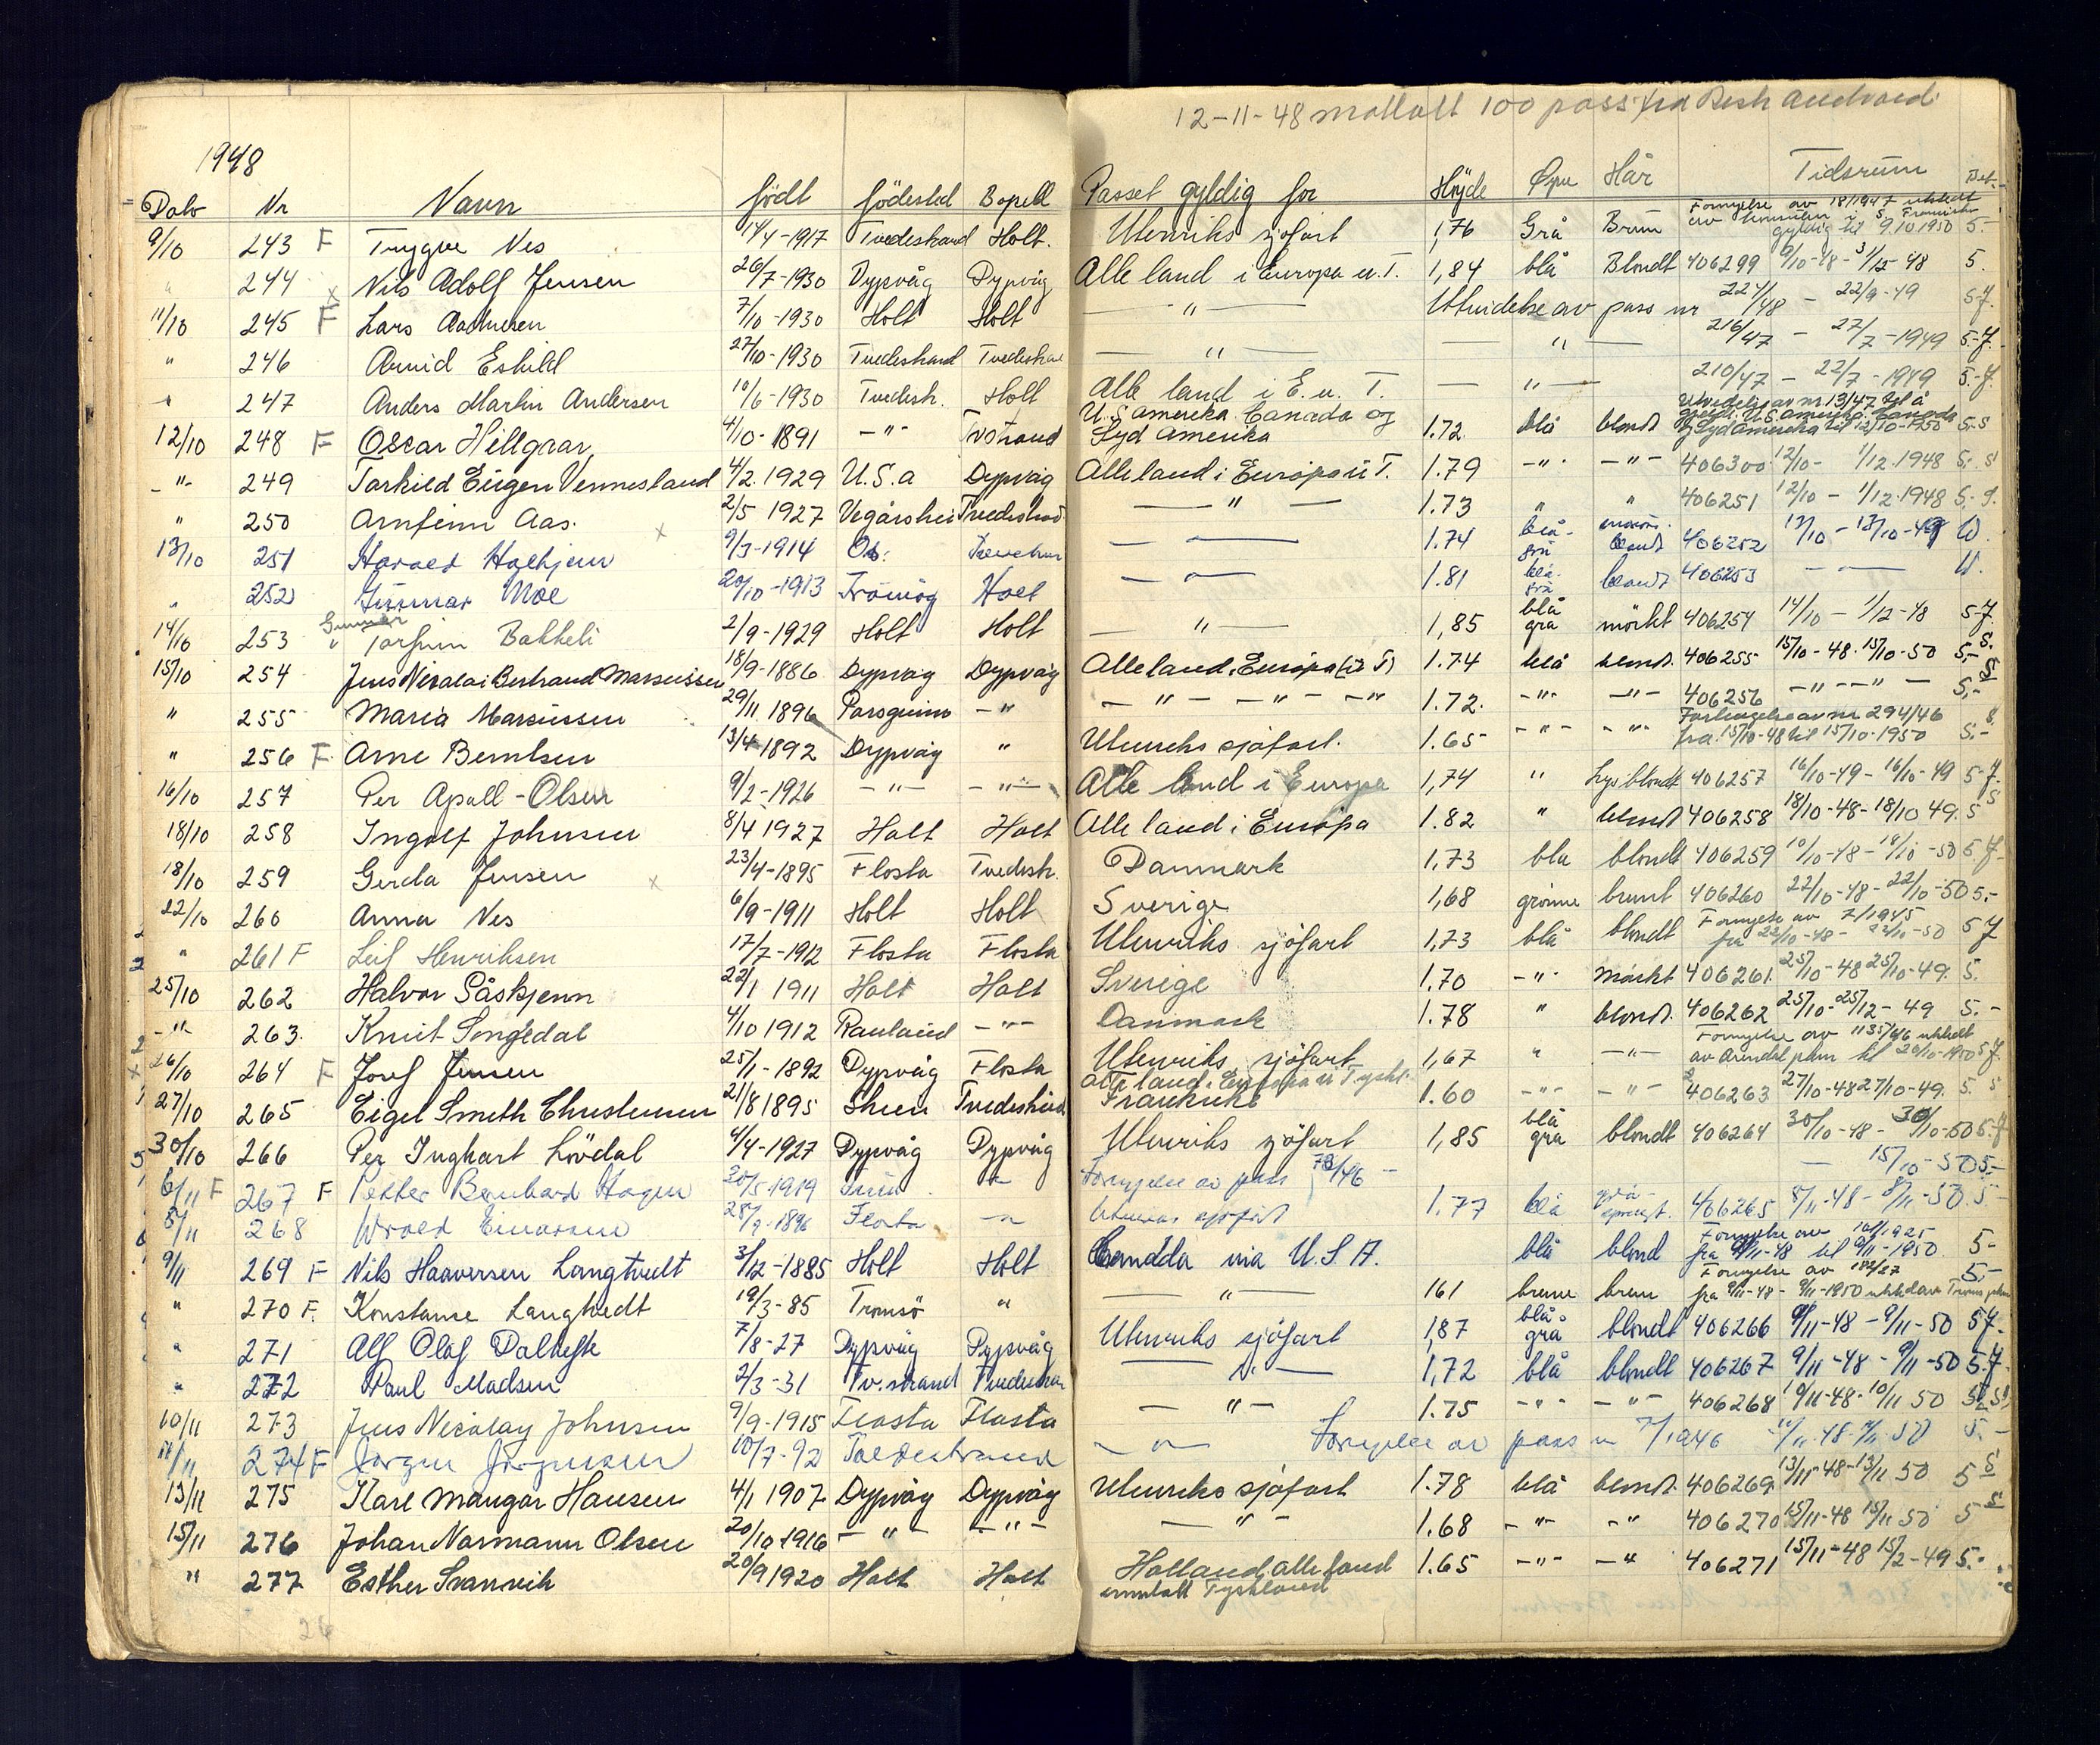 12-11-48 mottatt 100 pass fra
1948
Dato Nr Navn født fødested Bopell Passet gyldig for Høyde Øyne Hår Tidsrum
9/10 243 F Trygve Nes 14/4-1917 Tvedestrand Holt. Utenriks sjøfart 1,76 Grå Brun Fornyelse av 18/1947 utstedt av konsulen i S. Francisco gyldig til 9.10.1950 5.-
" 244 Nils Adolf Jensen 26/7-1930 Dypvåg Dypvåg Alle land i Europa u. T. 1,84 blå Blondt 406299 9/10-48 - 31/12-48 5.
11/10 245 F Lars 7/10-1930 Holt Holt — " — Utvidelse av pass nr 224/48 - 22/9-49 5-
" 246 Arvid Eskild 27/10-1930 Tvedestrand Tvedestrand — " — — " — 216/47 - 27/7-1949 5-
" 247 Anders Martin Andersen 10/6-1930 Tvedestr. Holt Alle land i E. u. T. — " — 210/47 - 22/7-1949 5-
12/10 248 F Oscar Hillgrar 4/10-1891 -"- Tvstrand U.S amerika Canada og Syd Amerika 1.72 blå blond Utvidelse av nr. 13/47 til å gjelde U.S. amerika Canada og Syd amerika til 12/10-1950 5-
-"- 249 Torkild Eugen Vennesland 4/2.1929 U.S.a Dypvåg Alle land i Europa u T. 1.79 -"- -"- 406300 12/10- 1/12.1948 5.-
" 250 Arnfinn Aas. 2/5 1927 Vegårshei Tvedestrand — " — 1.73 " " 406251 12/10 - 1/12 1948 5.
13/10 251 Harald 9/3-1914 — " — 1.74 blå-grå blond 406252 13/10 - 13/10-49
" 252 Gunnar Moe 20/10-1913 Tromøy Holt — " — 1.81 blå-grå blond 406253 — " —
14/10 253 Gunnar Torfinn Bakkeli 2/9-1929 Holt Holt — " — 1,85 blå grå mörkt 406254 14/10 - 1/12-48 5-
15/10 254 Jens Nicolai Bertrand Marcussen 18/9-1886 Dypvåg Dypvåg Alle land i Europa (u T) 1.74 blå blond. 406255 15/10-48. 15/10-50 5,-
" 255 Maria Marcussen 29/11.1896 -"- -"- -"- -"- 1.72. -"- -"- 406256 -"- -"- 5,-
" 256 F Arne Berntsen 13/4 1892 Dypvåg " Utenriks sjøfart. 1.65 -"- -"- Forlengelse av nr 294/46 fra 15/10-48 til 15/10-1950 5.-
16/10 257 Per Apall-Olsen 9/2-1926 -"- -"- Alle land i Europa 1,74 " Lys blondt 406257 16/10-49 - 16/10-49 5-
18/10 258 Ingolf Johnsen 8/4 1927 Holt Holt Alle land i Europa 1.82 " blond 406258 18/10-48-18/10 49. 5
18/10 259 Gerda Jensen 23/4-1895 Flosta Tvedestr. Danmark 1,73 blå blondt 406259 18/10-48 - 18/10-50 5
22/10 260 Anna Nes 6/9-1911 Holt Holt Sverige 1,68 grønne brunt 406260 22/10-48 - 22/10-50 5.-
" 261 F Leif Henriksen 17/7-1912 Flosta Flosta Utenriks sjøfart 1,73 blå blondt Fornyelse av 7/1945 fra 22/10-48 - 22/10-50 5
25/10 262 Halvor Såskjenn 22/1 1911 Holt Holt Sverige 1.70 -"- mörkt 406261. 25/10-48 25/10-49. 5.
-"- 263. Knut Songedal 4/10 1912 Rauland -"- Danmark 1.78 " blond. 406262 25/10-25/12-49 5.-
26/10 264 F Josef Jensen 25/1-1892 Dypvåg Flosta Utenriks sjøfart 1,67 " -"- Fornyelse av 1135/46 utstedt av Arendal pkm til 26/10-1950 5
27/10 265 Eigil Smith Christensen 21/8 1895 Skien Tvedestrand Alle land i Europa u Tyskl. Frankrike 1.60 -"- -"- 406263 27/10-48 27/10-49. 5.
30/10 266 Per Inghart Lövdal 4/4-1927 Dypvåg Dypvåg Utenriks sjöfart 1,85 blå grå blondt 406264 30/10-48 - 30/10-50 5
6/11 F 267 F Petter Bernhard Hagen 30/5-1919 Fornyelse av pass 73/46 — 15/10-50 5.-
8/11 268 28/9-1896 Flosta Utenriks sjøfart 1.77 blå 406265 8/11-48 - 8/11-50. 5-
9/11 269 F Nils Haaversen Langtvedt 3/12-1885 Holt Holt Canada via U.S.A. blå blond Fornyelse av fra 9/11-48 til 9/11-1950 5-
" 270 F. Konstanse Langtvedt 19/3-85 Tromsö " — " — 161 brune brun Fornyelse av 182/27 fra 9/11-48 - 9/11-1950 utstedt av Troms pkm 5.-
" 271 Alf Olaf Dalhefte 7/8-27 Dypvåg Dypvåg Utenriks sjøfart 1,87 blå-grå blondt 406266 9/11-48 - 9/11-50 5
" 272 Paul Madsen 2/3-31 Tv.strand Tvedestrand — " — 1,72 blå blondt 406267 9/11-48 - 9/11-50 5.
10/11 273 Jens Nicolay Johnsen 9/9-1915 Flosta Flosta — " — 1.75 -"- -"- 406268 10/11-48-10/11 50 5
11/11 274 F Jørgen Jørgensen 10/7-92 Tvedestrand — " — Fornyelse av pass nr 7/1946 11/11-48-11/11-50 5.-
13/11 275 Karl Mangar Hansen 4/1 1907 Dypvåg Dypvåg Utenriks sjøfart 1.78 blå blond. 406269. 13/11-48-13/11 50 5
15/11 276 Johan Normann Olsen 20/10 1916 -"- -"- — " — 1.68 -"- -"- 406270 15/11-48 15/11 50 5
" 277 Esther Svanvik 20/9 1920 Holt Holt Holland alle land unntatt Tyskland 1.65 -"- -"- 406271 15/11-48 15/2-49 5.-
26